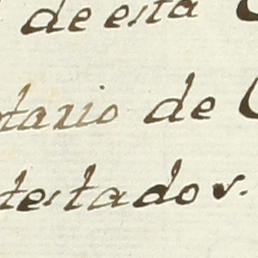 de esta
tario de
testados.